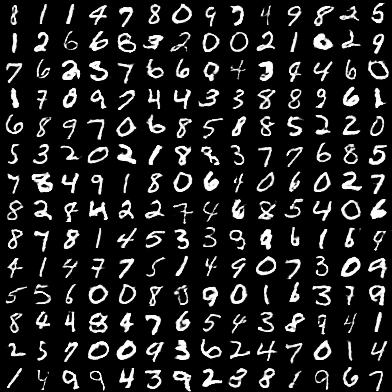 8 1 1 4 7 8 0 9 3 4 9 8 2 5
1 2 6 6 6 3 2 0 0 2 1 0 2 9
7 6 2 3 7 6 6 9 4 3 4 4 6 0
1 7 0 9 7 4 4 3 3 8 8 9 6 1
6 8 9 7 0 6 8 5 8 8 5 2 2 0
5 3 2 0 2 1 8 8 3 7 7 6 8 5
7 8 4 9 1 8 0 6 4 0 6 0 2 7
8 2 8 4 2 2 7 4 6 8 5 4 0 6
8 7 8 1 4 5 3 3 9 9 6 1 6 9
4 1 4 7 7 5 1 4 9 0 7 3 0 9
5 5 6 0 0 8 0 9 0 1 6 3 7 8
8 4 4 8 4 7 6 5 4 3 8 9 4 1
2 5 7 0 0 9 3 6 2 4 7 0 1 4
1 4 9 9 4 3 9 2 8 8 1 9 6 7